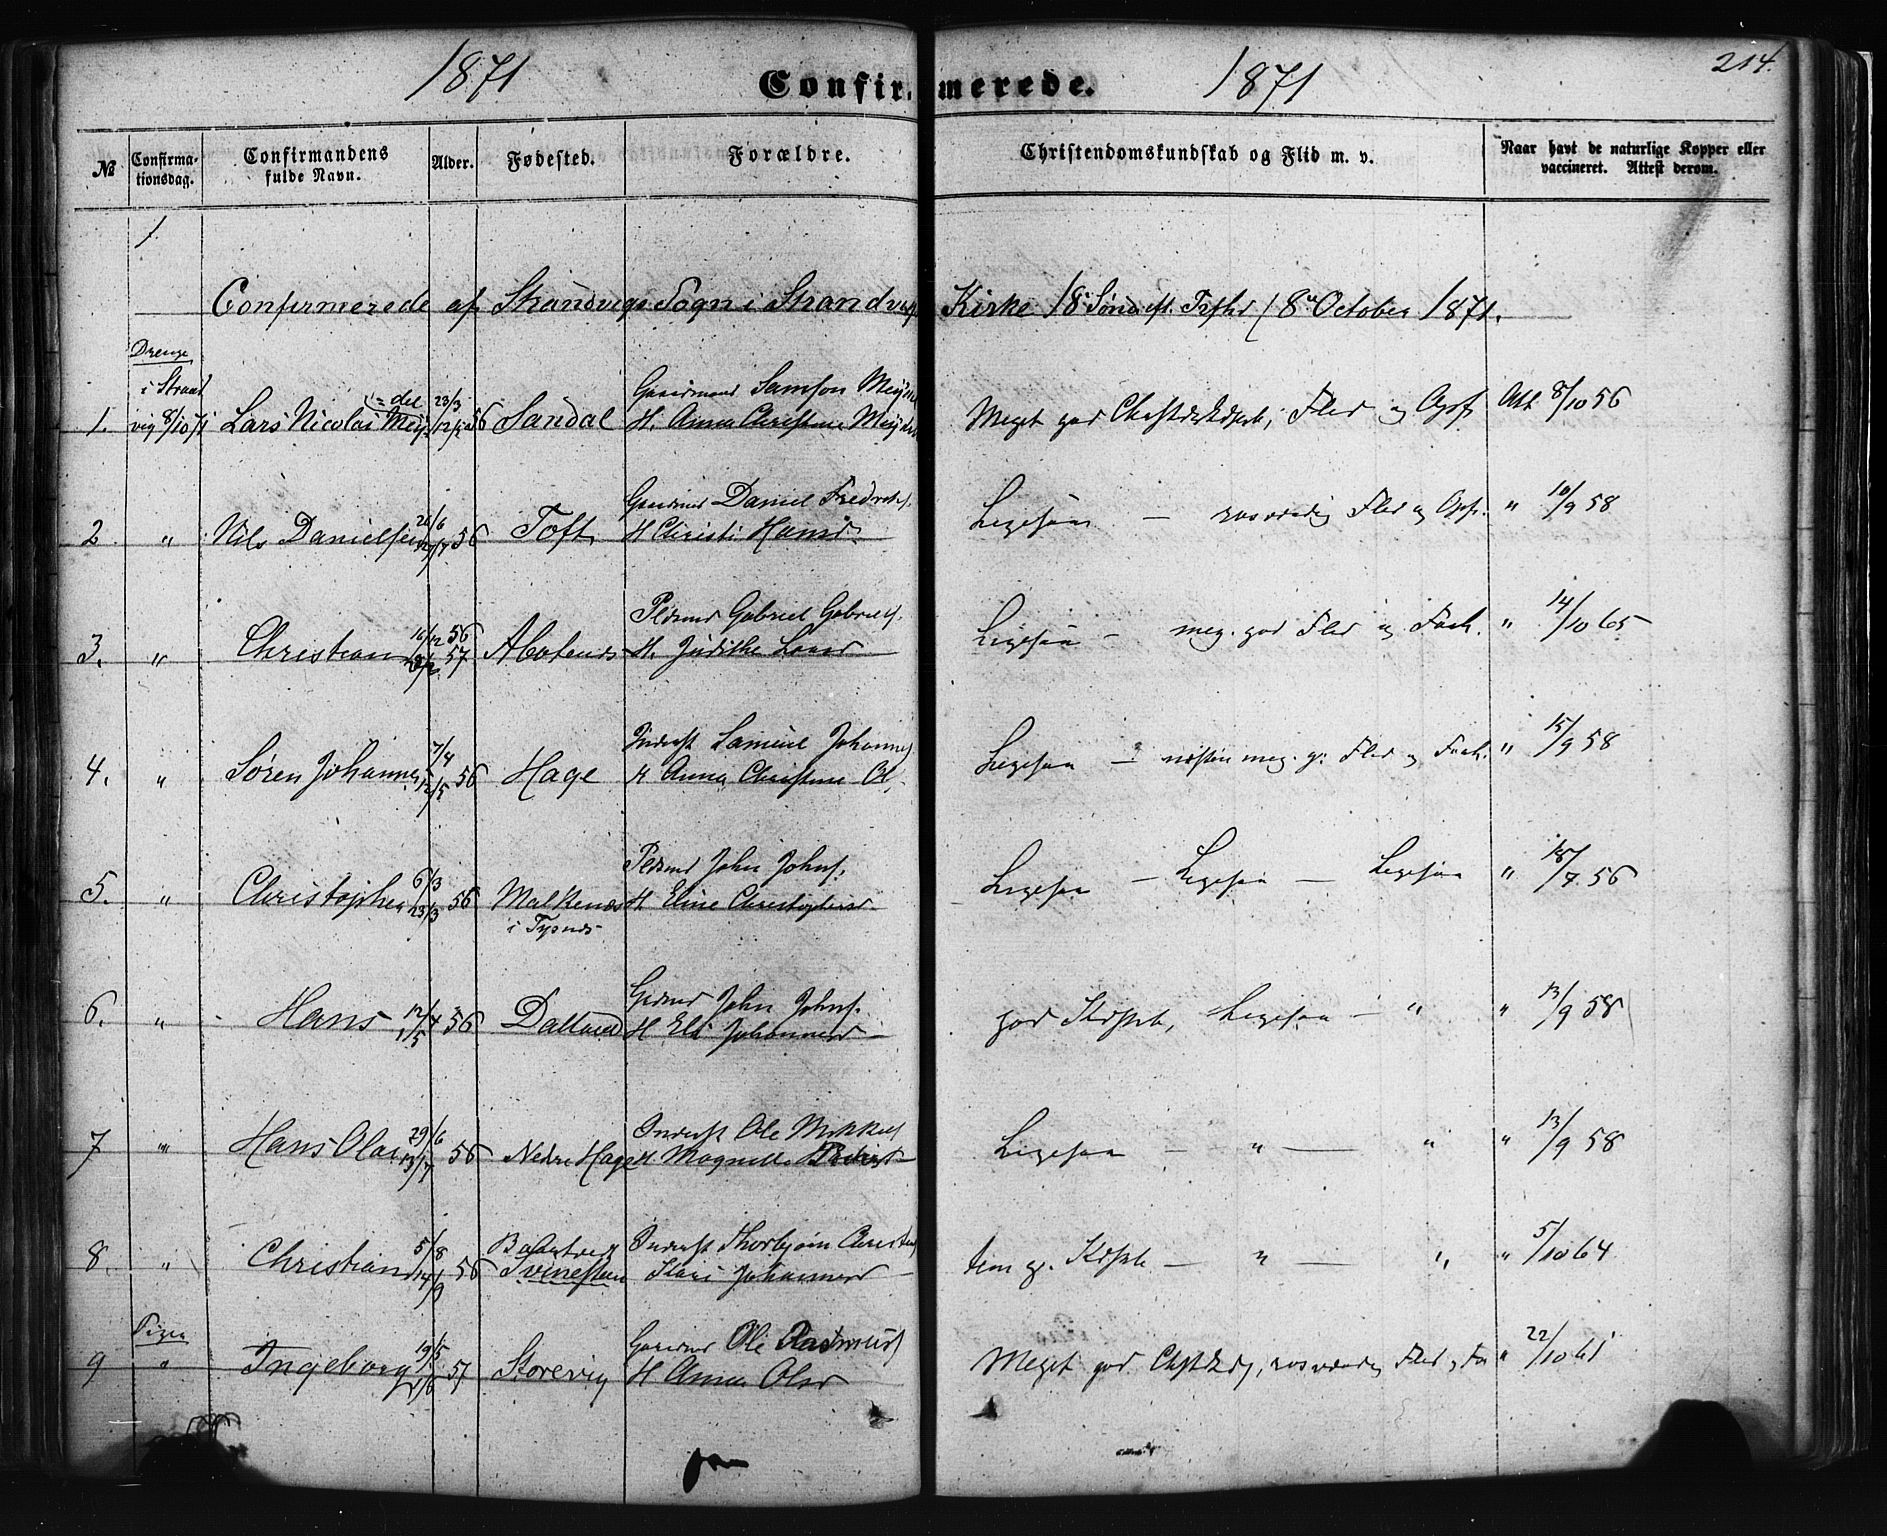 1871 Confirmerede. 1871 214.
№ Confirmationsdag. Confirmandens fulde Navn. Alder. Fødested. Forældre. Christendomskundskab og Flid m. v. Naar havt de naturlige Kopper eller vaccineret. Attest derom.
1.
Confirmerede af Strandvigs Sogn i Strandvigs Kirke 18 Sønd. eft. Trefhd (8de October 1871.
Drenge
i Strand
vig 8/10 71
1. Lars Nicolai 23/3 12/5 56 Sandal Gaardmd Samson H. Anna Christine Meget god Flid og Opf. Att. 8/10 56
2. " Nils Danielsen 26/6 56 Toft Gaardmd Daniel Fredriks. H Christi Hansd. Ligesaa — rosværdig Flid og Opf. " 10/9 58
3. " Christian 16/12 56 57 Plsmd Gabriel Gabriels. H. Judithe Larsd Ligesaa — meg. god Flid og Forh. " 14/10 65
4. " Søren Johannes 7/4 12/5 56 Hage Inderst Samuel Johannes H Anna Christine Ol. Ligesaa — næsten meg. g. Flid og Forh. " 15/9 58
5. " Christopher 6/3 23/3 56 Malkenes i Tysnes Plsmd John Johns. H Eline Christophersd Ligesaa — Ligesaa — Ligesaa " 18/7 56
6. " Hans 12/4 1/5 56 Dalland Grdmd John Johns. H Eli Johannesd god Kdskb, Ligesaa — " " 13/9 58
7 " Hans Olai 29/6 13/7 56 Nedre Hage Inderst Ole Mikkels H Magnilde Ligesaa — " — " " 13/9 58
8. " Christian 5/8 14/9 56 Svinestøen Inderst Thorbjørn Christens Kari Johannesd tem. g. Kdskb — " — " " 5/10 64
Piger
9 " Ingeborg 19/5 57 Storevig Gaardmd Ole Rasmus H Anna Olsd Meget god rosværdig Flid og Fo " 22/10 61